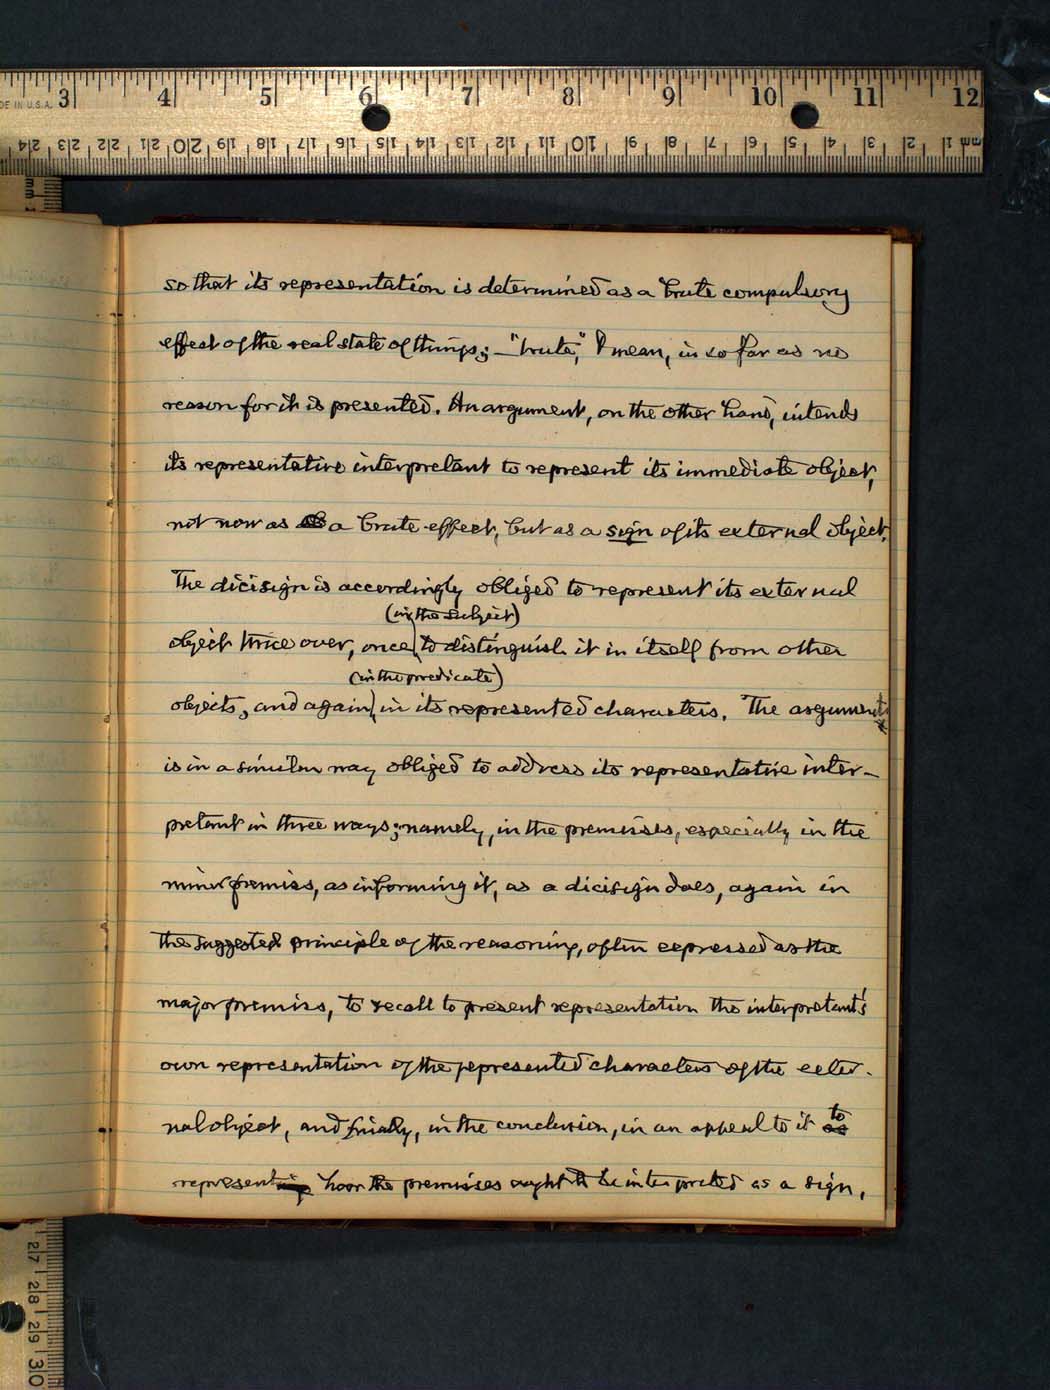 MADE IN U.S.A. 3 4 5 6 7 8 9 10 11 12
mm 1 2 3 4 5 6 7 8 9 10 11 12 13 14 15 16 17 18 19 20 21 22 23 24
mm
so that its representation is determined as a brute compulsory
effect of the real state of things; – "brute," I mean, in so far as no
reason for it is presented. An argument, on the other hand, intends
its representative interpretant to represent its immediate object,
not now as a brute effect, but as a sign of its external object.
The dicisign is accordingly obliged to represent its external
(in the subject)
object twice over, once to distinguish it in itself from other
(in the predicate)
objects, and again in its represented characters. The argument
is in a similar way obliged to address its representative inter-
pretant in three ways; namely, in the premisses, especially in the
minor premiss, as informing it, as a dicisign does, again in
the suggested principle of the reasoning, often expressed as the
major premiss, to recall to present representation the interpretant's
own representation of the represented characters of the exter-
nal object, and finally, in the conclusion, in an appeal to it to
represent how the premisses ought to be interpreted as a sign,
27 28 29 30